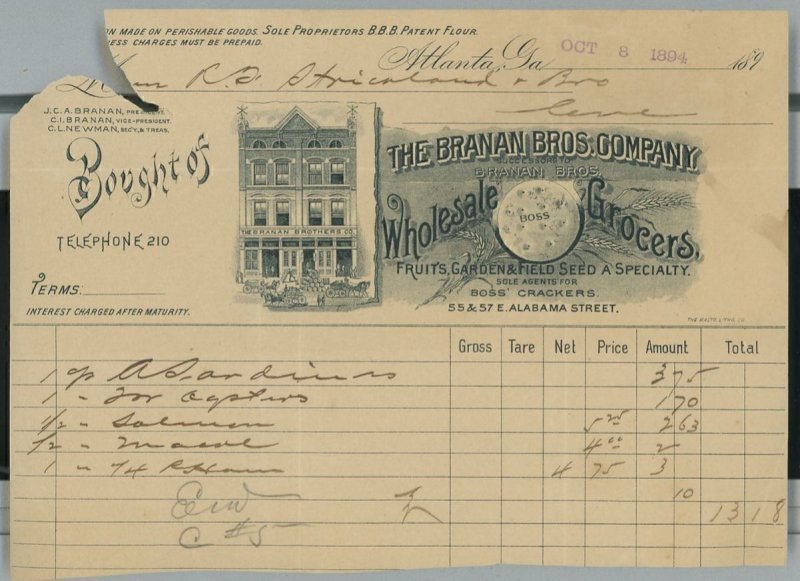 ON MADE ON PERISHABLE GOODS. SOLE PROPRIETORS B.B.B. PATENT FLOUR.
ESS CHARGES MUST BE PREPAID.
Atlanta, Ga OCT 8 1894 189
R. D. Strickland & Bro
J.C.A. BRANAN, PRESIDENT.
C.I. BRANAN, VICE-PRESIDENT.
C.L. NEWMAN, SEC'Y, & TREAS.
Bought of
TELEPHONE 210
TERMS:
INTEREST CHARGED AFTER MATURITY.
THE BRANAN BROTHERS CO.
THE BRANAN BROS. COMPANY
SUCCESSORS TO
BRANAN BROS.
Wholesale Grocers.
BOSS
FRUITS, GARDEN & FIELD SEED A SPECIALTY.
SOLE AGENTS FOR
BOSS' CRACKERS.
55 & 57 E. ALABAMA STREET.
Gross Tare Net Price Amount Total
1 A Sardines 3 75
1 " Oysters 1 70
1/2 " Salmon 5 25 2 63
1/2 " 4 00 2
1 " 4 75 3
10
13 18
C #5